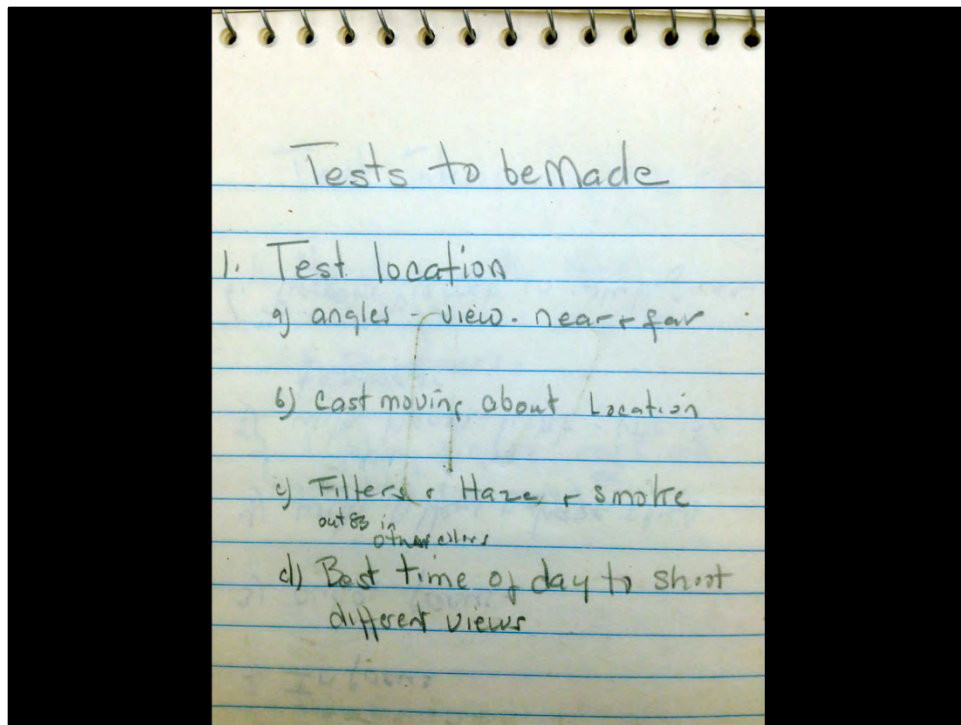 Tests to be Made
1. Test location
a) angles - view - near + far
b) Cast moving about Location
c) Filters + Haze + smoke
out 85 in
other colors
d) Best time of day to shoot
different views